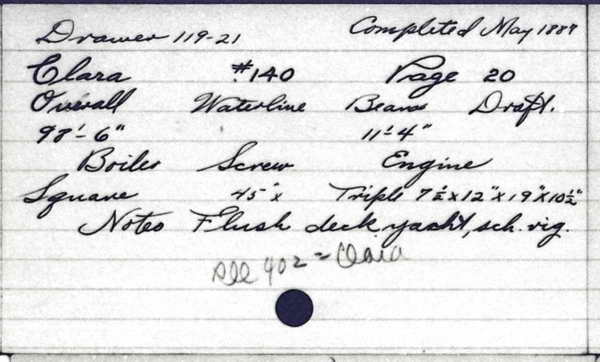 Drawer 119-21 Completed May 1887
Clara #140 Page 20
Overall Waterline Beam Draft.
98'-6" 11'-4"
Boiler Screw Engine
Square 45" x Triple 7½ x 12" x 19" x 10½"
Notes Flush deck yacht, sch. rig.
See 402 = Clara